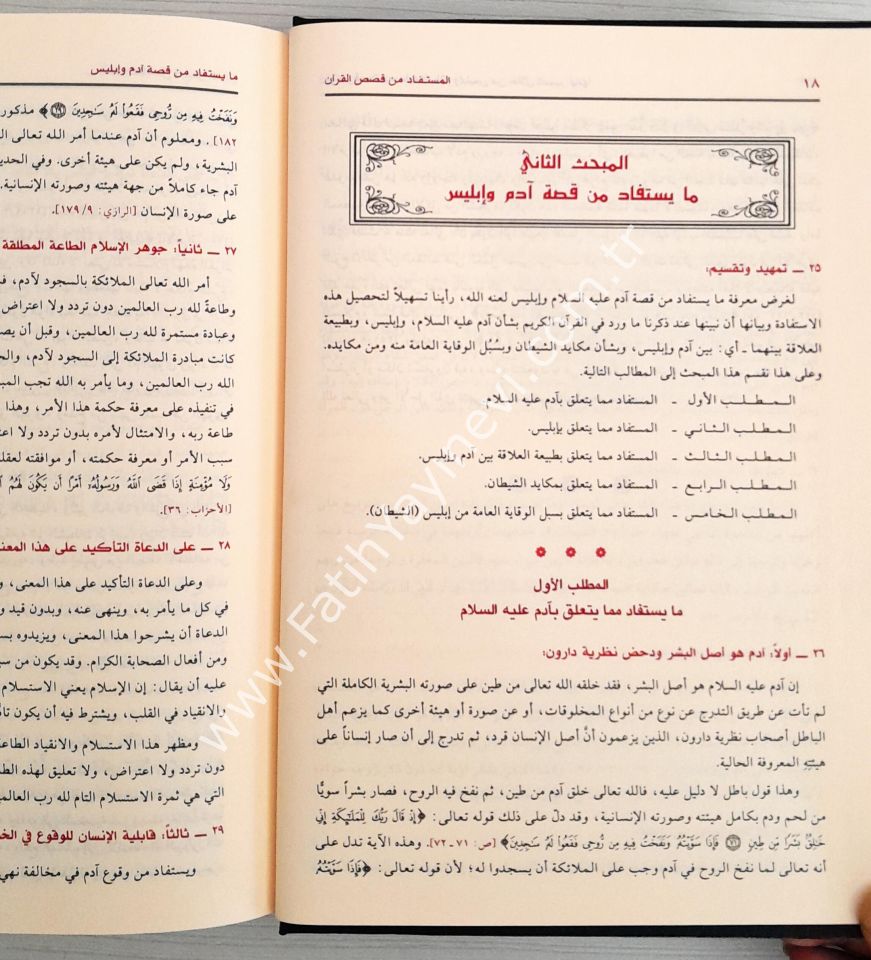 ١٨
المستفاد من قصص القرآن
المبحث الثاني
ما يستفاد من قصة آدم وإبليس
٢٥ ـ تمهيد وتقسيم:
لغرض معرفة ما يستفاد من قصة آدم عليه السلام وإبليس لعنه الله، رأينا تسهيلاً لتحصيل هذه
الاستفادة وبيانها أن نبينها عند ذكرنا ما ورد في القرآن الكريم بشأن آدم عليه السلام، وإبليس، وبطبيعة
العلاقة بينهما ـ أي: بين آدم وإبليس، وبشأن مكايد الشيطان وسُبُل الوقاية العامة منه ومن مكايده.
وعلى هذا نقسم هذا المبحث إلى المطالب التالية.
المـطـلـب الأول ـ المستفاد مما يتعلق بآدم عليه السلام.
المـطـلـب الـثـانـي ـ المستفاد مما يتعلق بإبليس.
المـطـلـب الـثـالـث ـ المستفاد مما يتعلق بطبيعة العلاقة بين آدم وإبليس.
المـطـلـب الـرابـع ـ المستفاد مما يتعلق بمكايد الشيطان.
المـطـلـب الخـامس ـ المستفاد مما يتعلق بسبل الوقاية العامة من إبليس (الشيطان).
* * *
المطلب الأول
ما يستفاد مما يتعلق بآدم عليه السلام
٢٦ ـ أولاً: آدم هو أصل البشر ودحض نظرية دارون:
إن آدم عليه السلام هو أصل البشر، فقد خلقه الله تعالى من طين على صورته البشرية الكاملة التي
لم تأت عن طريق التدرج عن نوع من أنواع المخلوقات، أو عن صورة أو هيئة أخرى كما يزعم أهل
الباطل أصحاب نظرية دارون، الذين يزعمون أنَّ أصل الإنسان قرد، ثم تدرج إلى أن صار إنساناً على
هيئتِهِ المعروفة الحالية.
وهذا قول باطل لا دليل عليه، فالله تعالى خلق آدم من طين، ثم نفخ فيه الروح، فصار بشراً سويًّا
من لحم ودم بكامل هيئته وصورته الإنسانية، وقد دلّ على ذلك قوله تعالى: ﴿إِذْ قَالَ رَبُّكَ لِلْمَلَٰٓئِكَةِ إِنِّى
خَٰلِقٌۢ بَشَرًا مِّن طِينٍ ۝٧١ فَإِذَا سَوَّيْتُهُۥ وَنَفَخْتُ فِيهِ مِن رُّوحِى فَقَعُوا۟ لَهُۥ سَٰجِدِينَ﴾ [ص: ٧١ ـ ٧٢]. وهذه الآية تدل على
أنه تعالى لما نفخ الروح في آدم وجب على الملائكة أن يسجدوا له؛ لأن قوله تعالى: ﴿فَإِذَا سَوَّيْتُهُۥ
ما يستفاد من قصة آدم وإبليس
وَنَفَخْتُ فِيهِ مِن رُّوحِى فَقَعُوا۟ لَهُۥ سَٰجِدِينَ ۝٢٩﴾ مذكور
١٨٢]. ومعلوم أن آدم عندما أمر الله تعالى ال
البشرية، ولم يكن على هيئة أخرى. وفي الحدي
آدم جاء كاملاً من جهة هيئته وصورته الإنسانية.
على صورة الإنسان [الرازي: ١٧٩/٩].
٢٧ ـ ثانياً: جوهر الإسلام الطاعة المطلقة
أمر الله تعالى الملائكة بالسجود لآدم، ف
وطاعةً لله رب العالمين دون تردد ولا اعتراض
وعبادة مستمرة لله رب العالمين، وقبل أن يص
كانت مبادرة الملائكة إلى السجود لآدم، والج
الله رب العالمين، وما يأمر به الله تجب المب
في تنفيذه على معرفة حكمة هذا الأمر، وهذا
طاعة ربه، والامتثال لأمره بدون تردد ولا اعت
سبب الأمر أو معرفة حكمته، أو موافقته لعقل
وَلَا مُؤْمِنَةٍ إِذَا قَضَى ٱللَّهُ وَرَسُولُهُۥٓ أَمْرًا أَن يَكُونَ لَهُمُ
[الأحزاب: ٣٦].
٢٨ ـ على الدعاة التأكيد على هذا المعنى
وعلى الدعاة التأكيد على هذا المعنى، و
في كل ما يأمر به، وينهى عنه، وبدون قيد و
الدعاة أن يشرحوا هذا المعنى، ويزيدوه بس
ومن أفعال الصحابة الكرام. وقد يكون من سب
عليه أن يقال: إن الإسلام يعني الاستسلام
والانقياد في القلب، ويشترط فيه أن يكون تام
ومظهر هذا الاستسلام والانقياد الطاعة
دون تردد ولا اعتراض، ولا تعليق لهذه الط
التي هي ثمرة الاستسلام التام لله رب العالم
٢٩ ـ ثالثاً: قابلية الإنسان للوقوع في الخ
ويستفاد من وقوع آدم في مخالفة نهي
www.FatihYayinevi.com.tr